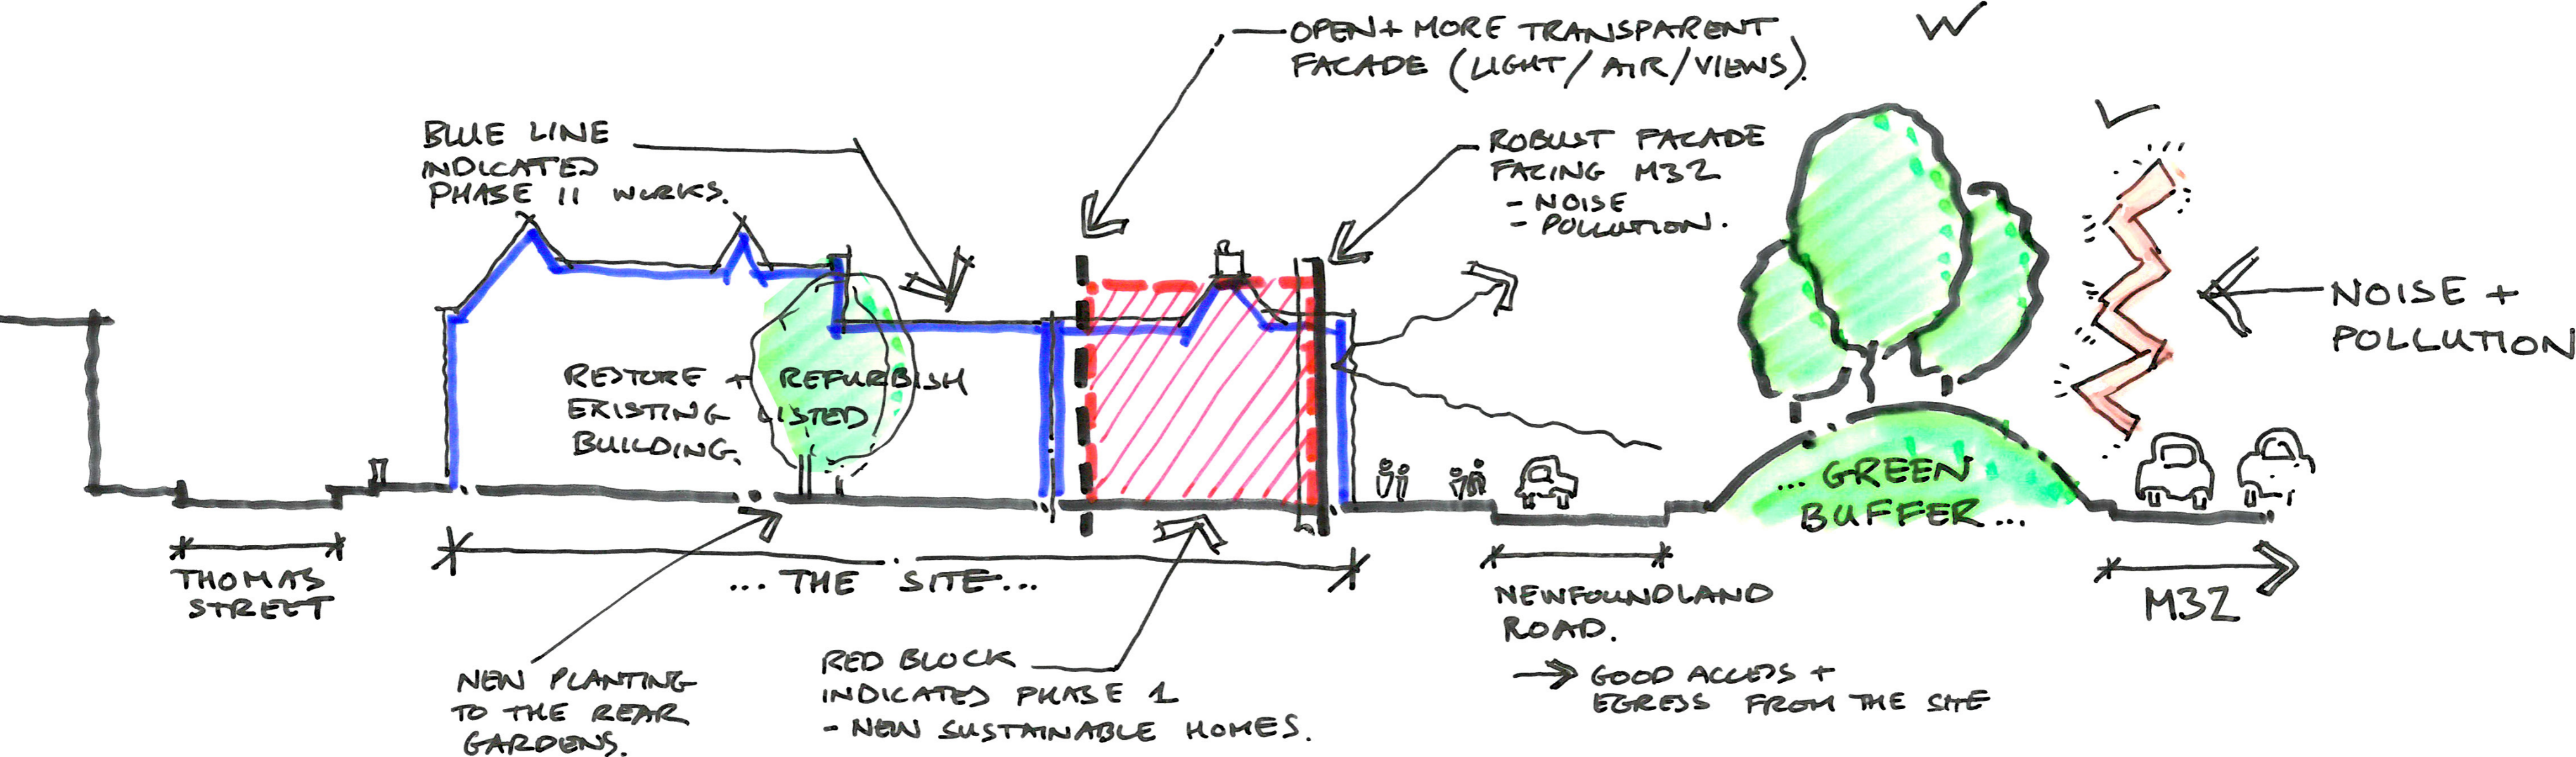 OPEN + MORE TRANSPARENT
FACADE (LIGHT / AIR / VIEWS).
BLUE LINE
INDICATED
PHASE II WORKS.
ROBUST FACADE
FACING M32
- NOISE
- POLLUTION.
NOISE +
POLLUTION
RESTORE + REFURBISH
EXISTING LISTED
BUILDING.
... GREEN
BUFFER ...
THOMAS
STREET
... THE SITE ...
NEWFOUNDLAND
ROAD.
→ GOOD ACCESS +
EGRESS FROM THE SITE
M32
NEW PLANTING
TO THE REAR
GARDENS.
RED BLOCK
INDICATED PHASE 1
- NEW SUSTAINABLE HOMES.